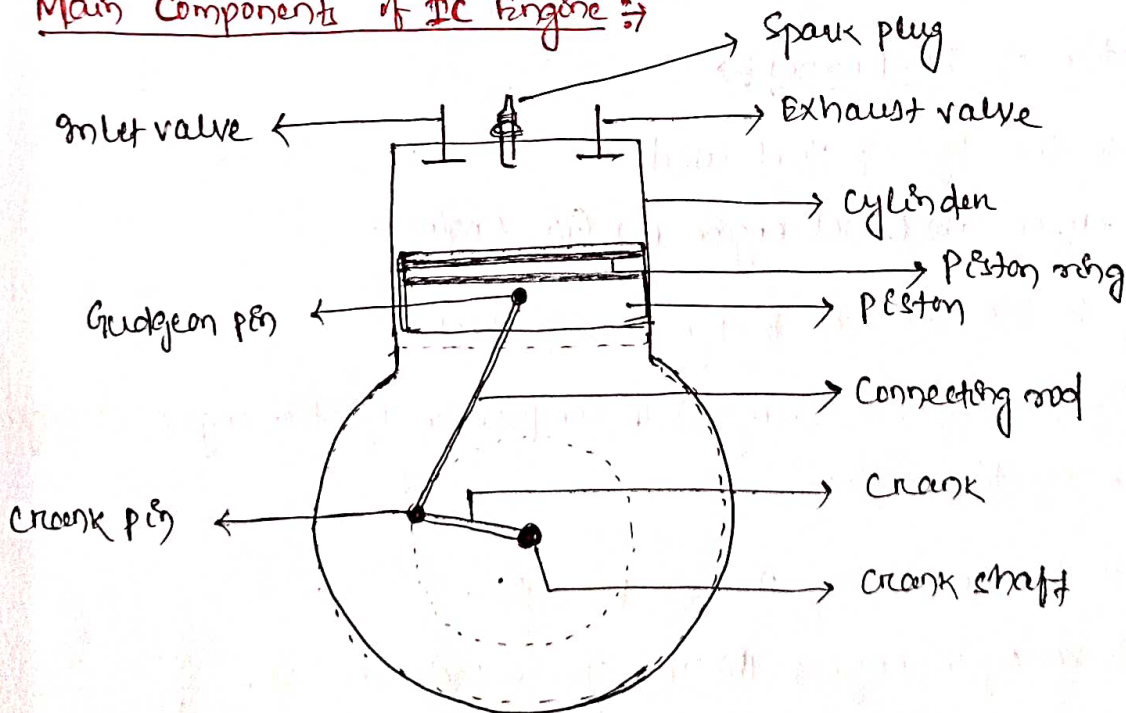 Main Components of IC Engine :→
Spark plug
Inlet valve
Exhaust valve
Cylinder
Piston ring
Gudgeon pin
Piston
Connecting rod
Crank
Crank pin
Crank shaft